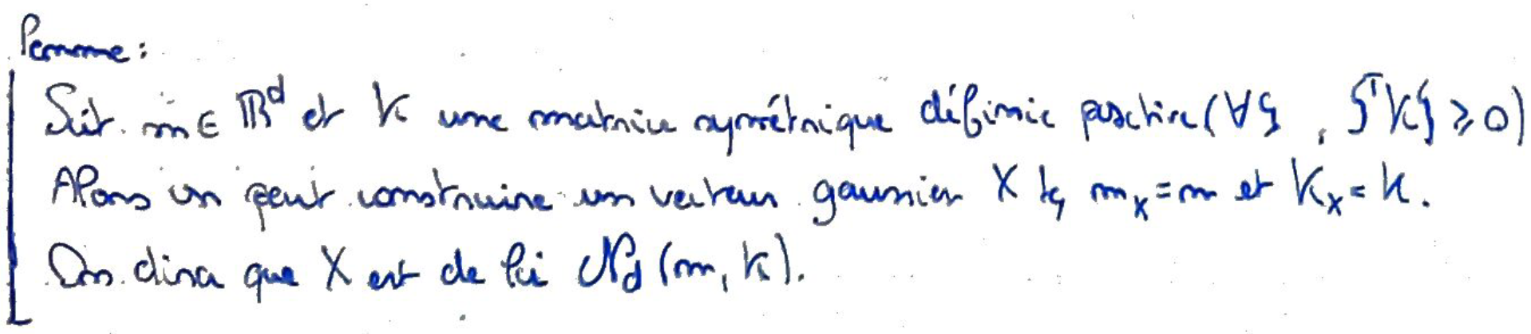 Lemme :
Soit m ∈ ℝ^d et K une matrice symétrique définie positive (∀ξ, ξ^T K ξ ≥ 0)
Alors on peut construire un vecteur gaussien X tq m_X = m et K_X = K.
On dira que X est de loi 𝒩_d (m, K).